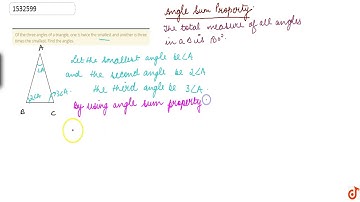 1532599
Of the three angles of a triangle, one is twice the smallest and another is three
times the smallest. Find the angles.
Angle Sum Property:
The total measure of all angles
in a Δ is 180°.
A
∠A
2∠A
3∠A
B
C
Let the smallest angle be ∠A
and the second angle be 2∠A
the third angle be 3∠A.
By using angle sum property